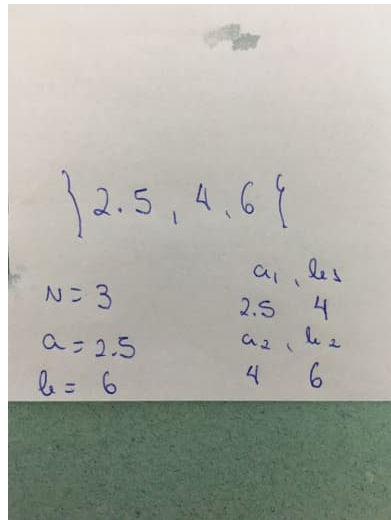 }2.5, 4, 6{
N = 3
a = 2.5
b = 6
a1, b1
2.5 4
a2, b2
4 6